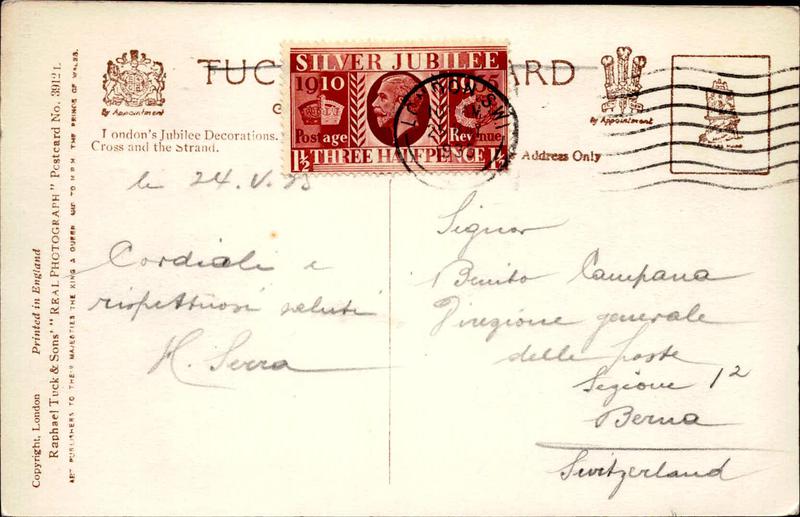 TUC
ARD
By Appointment
By Appointment
SILVER JUBILEE
1910
Postage
Revenue
1½ THREE HALFPENCE 1½
LONDON S.W.1
London's Jubilee Decorations.
Cross and the Strand.
Address Only
le 24.V.35
Cordiali e
rispettuosi saluti
H. Serra
Signor
Benito Campana
Direzione generale
delle poste
Sezione 1ª
Berna
Switzerland
Copyright, London Printed in England
Raphael Tuck & Sons' "REAL PHOTOGRAPH" Postcard No. 3912 I.
ART PUBLISHERS TO THEIR MAJESTIES THE KING & QUEEN AND TO H.R.H. THE PRINCE OF WALES.